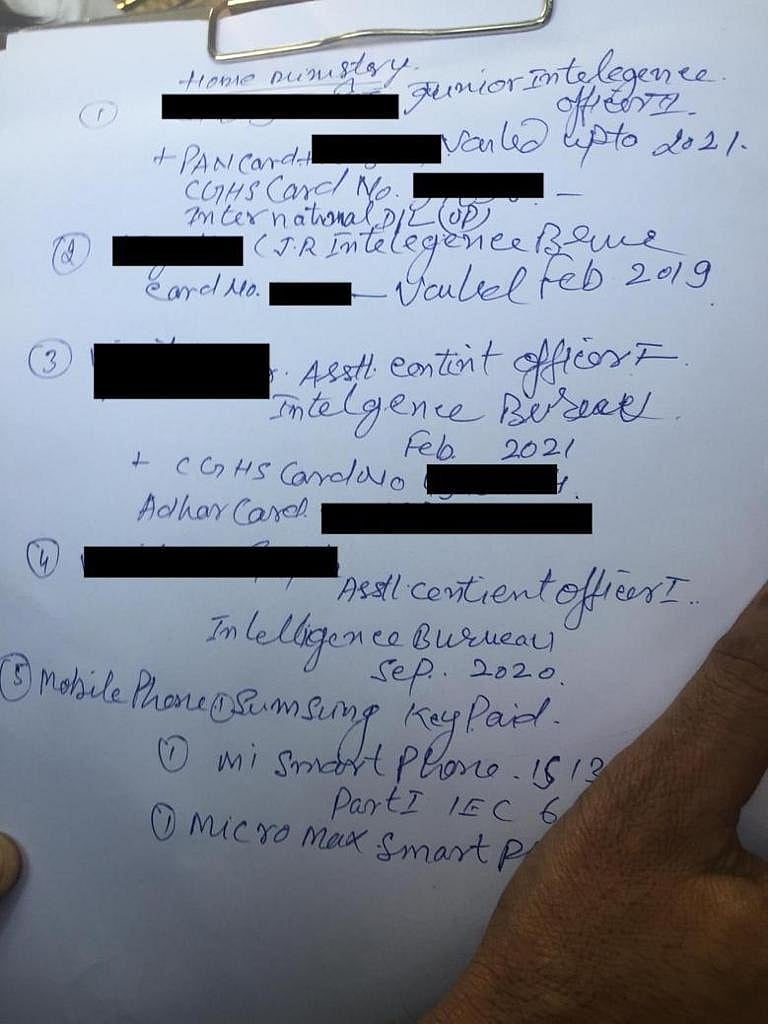 Home ministary.
① Junior Intelegence
officer II.
+ PAN Card + Vailed upto 2021.
CGHS Card No. —
International D/L (UP)
② (J.R Intelegence
Card No. — Feb 2019
③ Asstt. officer I
Intelgence
Feb. 2021
+ CGHS Card No
Adhar Card.
④
Asstt. centient officer I.
Intelligence Burueau
Sep. 2020.
⑤ Mobile Phone ① Sumsung Key Paid.
① Mi Smart Phone. 1513
Part I IEC 6
① Micro max Smart P